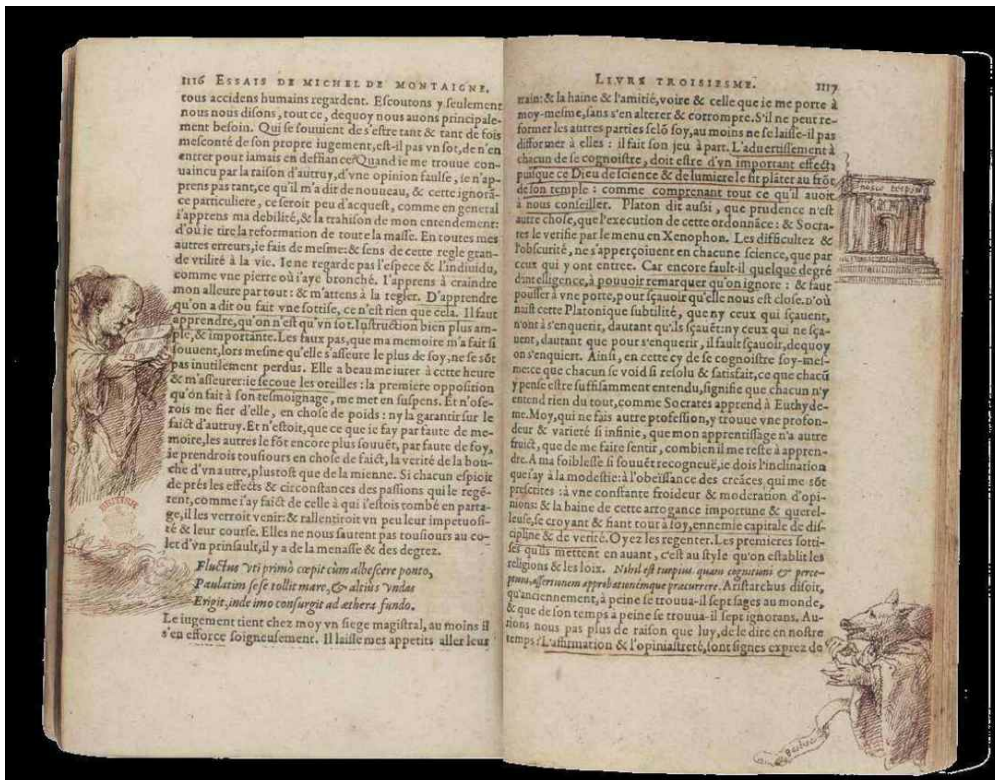 1116 ESSAIS DE MICHEL DE MONTAIGNE.
tous accidens humains regardent. Escoutons y seulement
nous nous disons, tout ce, dequoy nous auons principale-
ment besoin. Qui se souuient de s'estre tant & tant de fois
mesconté de son propre iugement, est-il pas vn sot, de n'en
entrer pour iamais en deffiance? Quand ie me trouue con-
uaincu par la raison d'autruy, d'vne opinion faulse, ie n'ap-
prens pas tant, ce qu'il m'a dit de nouueau, & cette ignorã-
ce particuliere, ce seroit peu d'acquest, comme en general
i'apprens ma debilité, & la trahison de mon entendement:
d'où ie tire la reformation de toute la masse. En toutes mes
autres erreurs, ie fais de mesme: & sens de cette regle gran-
de vtilité à la vie. Ie ne regarde pas l'espece & l'indiuidu,
comme vne pierre où i'aye bronché. I'apprens à craindre
mon alleure par tout: & m'attens à la regler. D'apprendre
qu'on a dit ou fait vne sottise, ce n'est rien que cela. Il faut
apprendre, qu'on n'est qu'vn sot. Instruction bien plus am-
ple, & importante. Les faux pas, que ma memoire m'a fait si
souuent, lors mesme qu'elle s'asseure le plus de soy, ne se sõt
pas inutilement perdus. Elle a beau me iurer à cette heure
& m'asseurer: ie secoue les oreilles: la premiere opposition
qu'on fait à son tesmoignage, me met en suspens. Et n'ose-
rois me fier d'elle, en chose de poids: ny la garantir sur le
faict d'autruy. Et n'estoit, que ce que ie fay par faute de me-
moire, les autres le fõt encore plus souuẽt, par faute de foy,
ie prendrois tousiours en chose de faict, la verité de la bou-
che d'vn autre, plustost que de la mienne. Si chacun espioit
de prés les effects & circonstances des passions qui le regẽ-
tent, comme i'ay faict de celle à qui i'estois tombé en parta-
ge, il les verroit venir: & rallentiroit vn peu leur impetuosi-
té & leur course. Elles ne nous sautent pas tousiours au co-
let d'vn prinsault, il y a de la menasse & des degrez.
Fluctus vti primò cœpit cùm albescere ponto,
Paulatim sese tollit mare, & altius vndas
Erigit, inde imo consurgit ad æthera fundo.
Le iugement tient chez moy vn siege magistral, au moins il
s'en efforce soigneusement. Il laisse mes appetits aller leur
LIVRE TROISIESME. 1117
train: & la haine & l'amitié, voire & celle que ie me porte à
moy-mesme, sans s'en alterer & corrompre. S'il ne peut re-
former les autres parties selõ soy, au moins ne se laisse-il pas
difformer à elles: il fait son jeu à part. L'aduertissement à
chacun de se cognoistre, doit estre d'vn important effect,
puisque ce Dieu de science & de lumiere le fit plãter au frõt
de son temple: comme comprenant tout ce qu'il auoit
à nous conseiller. Platon dit aussi, que prudence n'est
autre chose, que l'execution de cette ordonnãce: & Socra-
tes le verifie par le menu en Xenophon. Les difficultez &
l'obscurité, ne s'apperçoiuent en chacune science, que par
ceux qui y ont entree. Car encore fault-il quelque degré
d'intelligence, à pouuoir remarquer qu'on ignore: & faut
pousser à vne porte, pour sçauoir qu'elle nous est close. D'où
naist cette Platonique subtilité, que ny ceux qui sçauent,
n'ont à s'enquerir, dautant qu'ils sçauẽt: ny ceux qui ne sça-
uent, dautant que pour s'enquerir, il fault sçauoir, dequoy
on s'enquiert. Ainsi, en cette cy de se cognoistre soy-mes-
me: ce que chacun se void si resolu & satisfait, ce que chacũ
y pense estre suffisamment entendu, signifie que chacun n'y
entend rien du tout, comme Socrates apprend à Euthyde-
me. Moy, qui ne fais autre profession, y trouue vne profon-
deur & varieté si infinie, que mon apprentissage n'a autre
fruict, que de me faire sentir, combien il me reste à appren-
dre. A ma foiblesse si souuẽt recogneuë, ie dois l'inclination
que i'ay à la modestie: à l'obeïssance des creãces qui me sõt
prescrites: à vne constante froideur & moderation d'opi-
nions: & la haine de cette arrogance importune & querel-
leuse, se croyant & fiant tout à soy, ennemie capitale de dis-
cipline & de verité. Oyez les regenter. Les premieres sotti-
ses qu'ils mettent en auant, c'est au style qu'on establit les
religions & les loix. Nihil est turpius quam cognitioni & perce-
ptioni, assertionem approbationemque præcurrere. Aristarchus disoit,
qu'anciennement, à peine se trouua-il sept sages au monde,
& que de son temps à peine se trouua-il sept ignorans. Au-
rions nous pas plus de raison que luy, de le dire en nostre
temps? L'affirmation & l'opiniastreté, sont signes exprez de
nosce teipsum